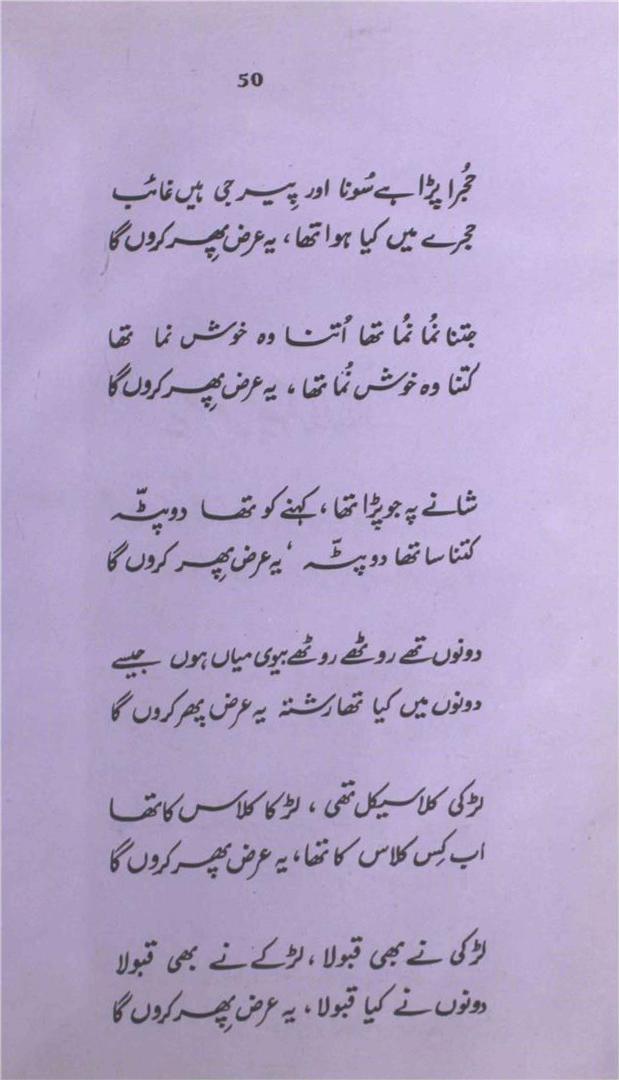 50
حُجرا پڑا ہے سُونا اور پِیر جی ہیں غائب
حجرے میں کیا ہوا تھا، یہ عرض پِھر کروں گا
جتنا نُما نُما تھا اُتنا وہ خوش نما تھا
کتنا وہ خوش نُما تھا، یہ عرض پِھر کروں گا
شانے پہ جو پڑا تھا، کہنے کو تھا دوپٹّہ
کتنا سا تھا دوپٹّہ ، یہ عرض پِھر کروں گا
دونوں تھے روٹھے روٹھے بیوی میاں ہوں جیسے
دونوں میں کیا تھا رشتہ یہ عرض پھر کروں گا
لڑکی کلاسیکل تھی ، لڑکا کلاس کا تھا
اب کِس کلاس کا تھا، یہ عرض پھر کروں گا
لڑکی نے بھی قبولا ، لڑکے نے بھی قبولا
دونوں نے کیا قبولا، یہ عرض پِھر کروں گا